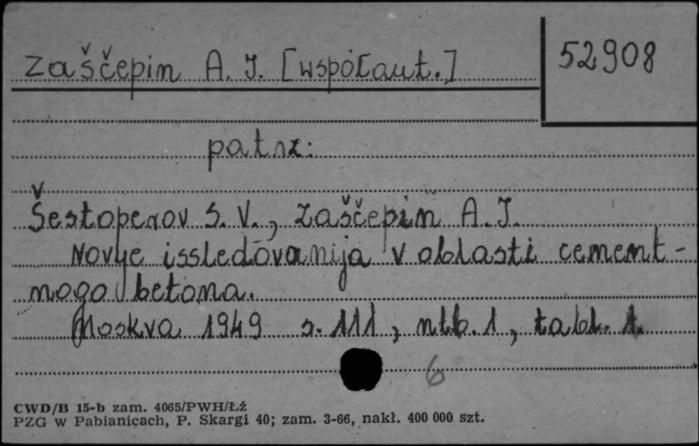 Zaščepin A. J. [współaut.]
52908
patrz:
Šestoperov S. V., Zaščepin A. J.
Novye issledovanija v oblasti cement-
nogo betona.
Moskva 1949 s. 111, nlb. 1, tabl. 1.
6
CWD/B 15-b zam. 4065/PWH/Łż
PZG w Pabianicach, P. Skargi 40; zam. 3-66, nakł. 400 000 szt.